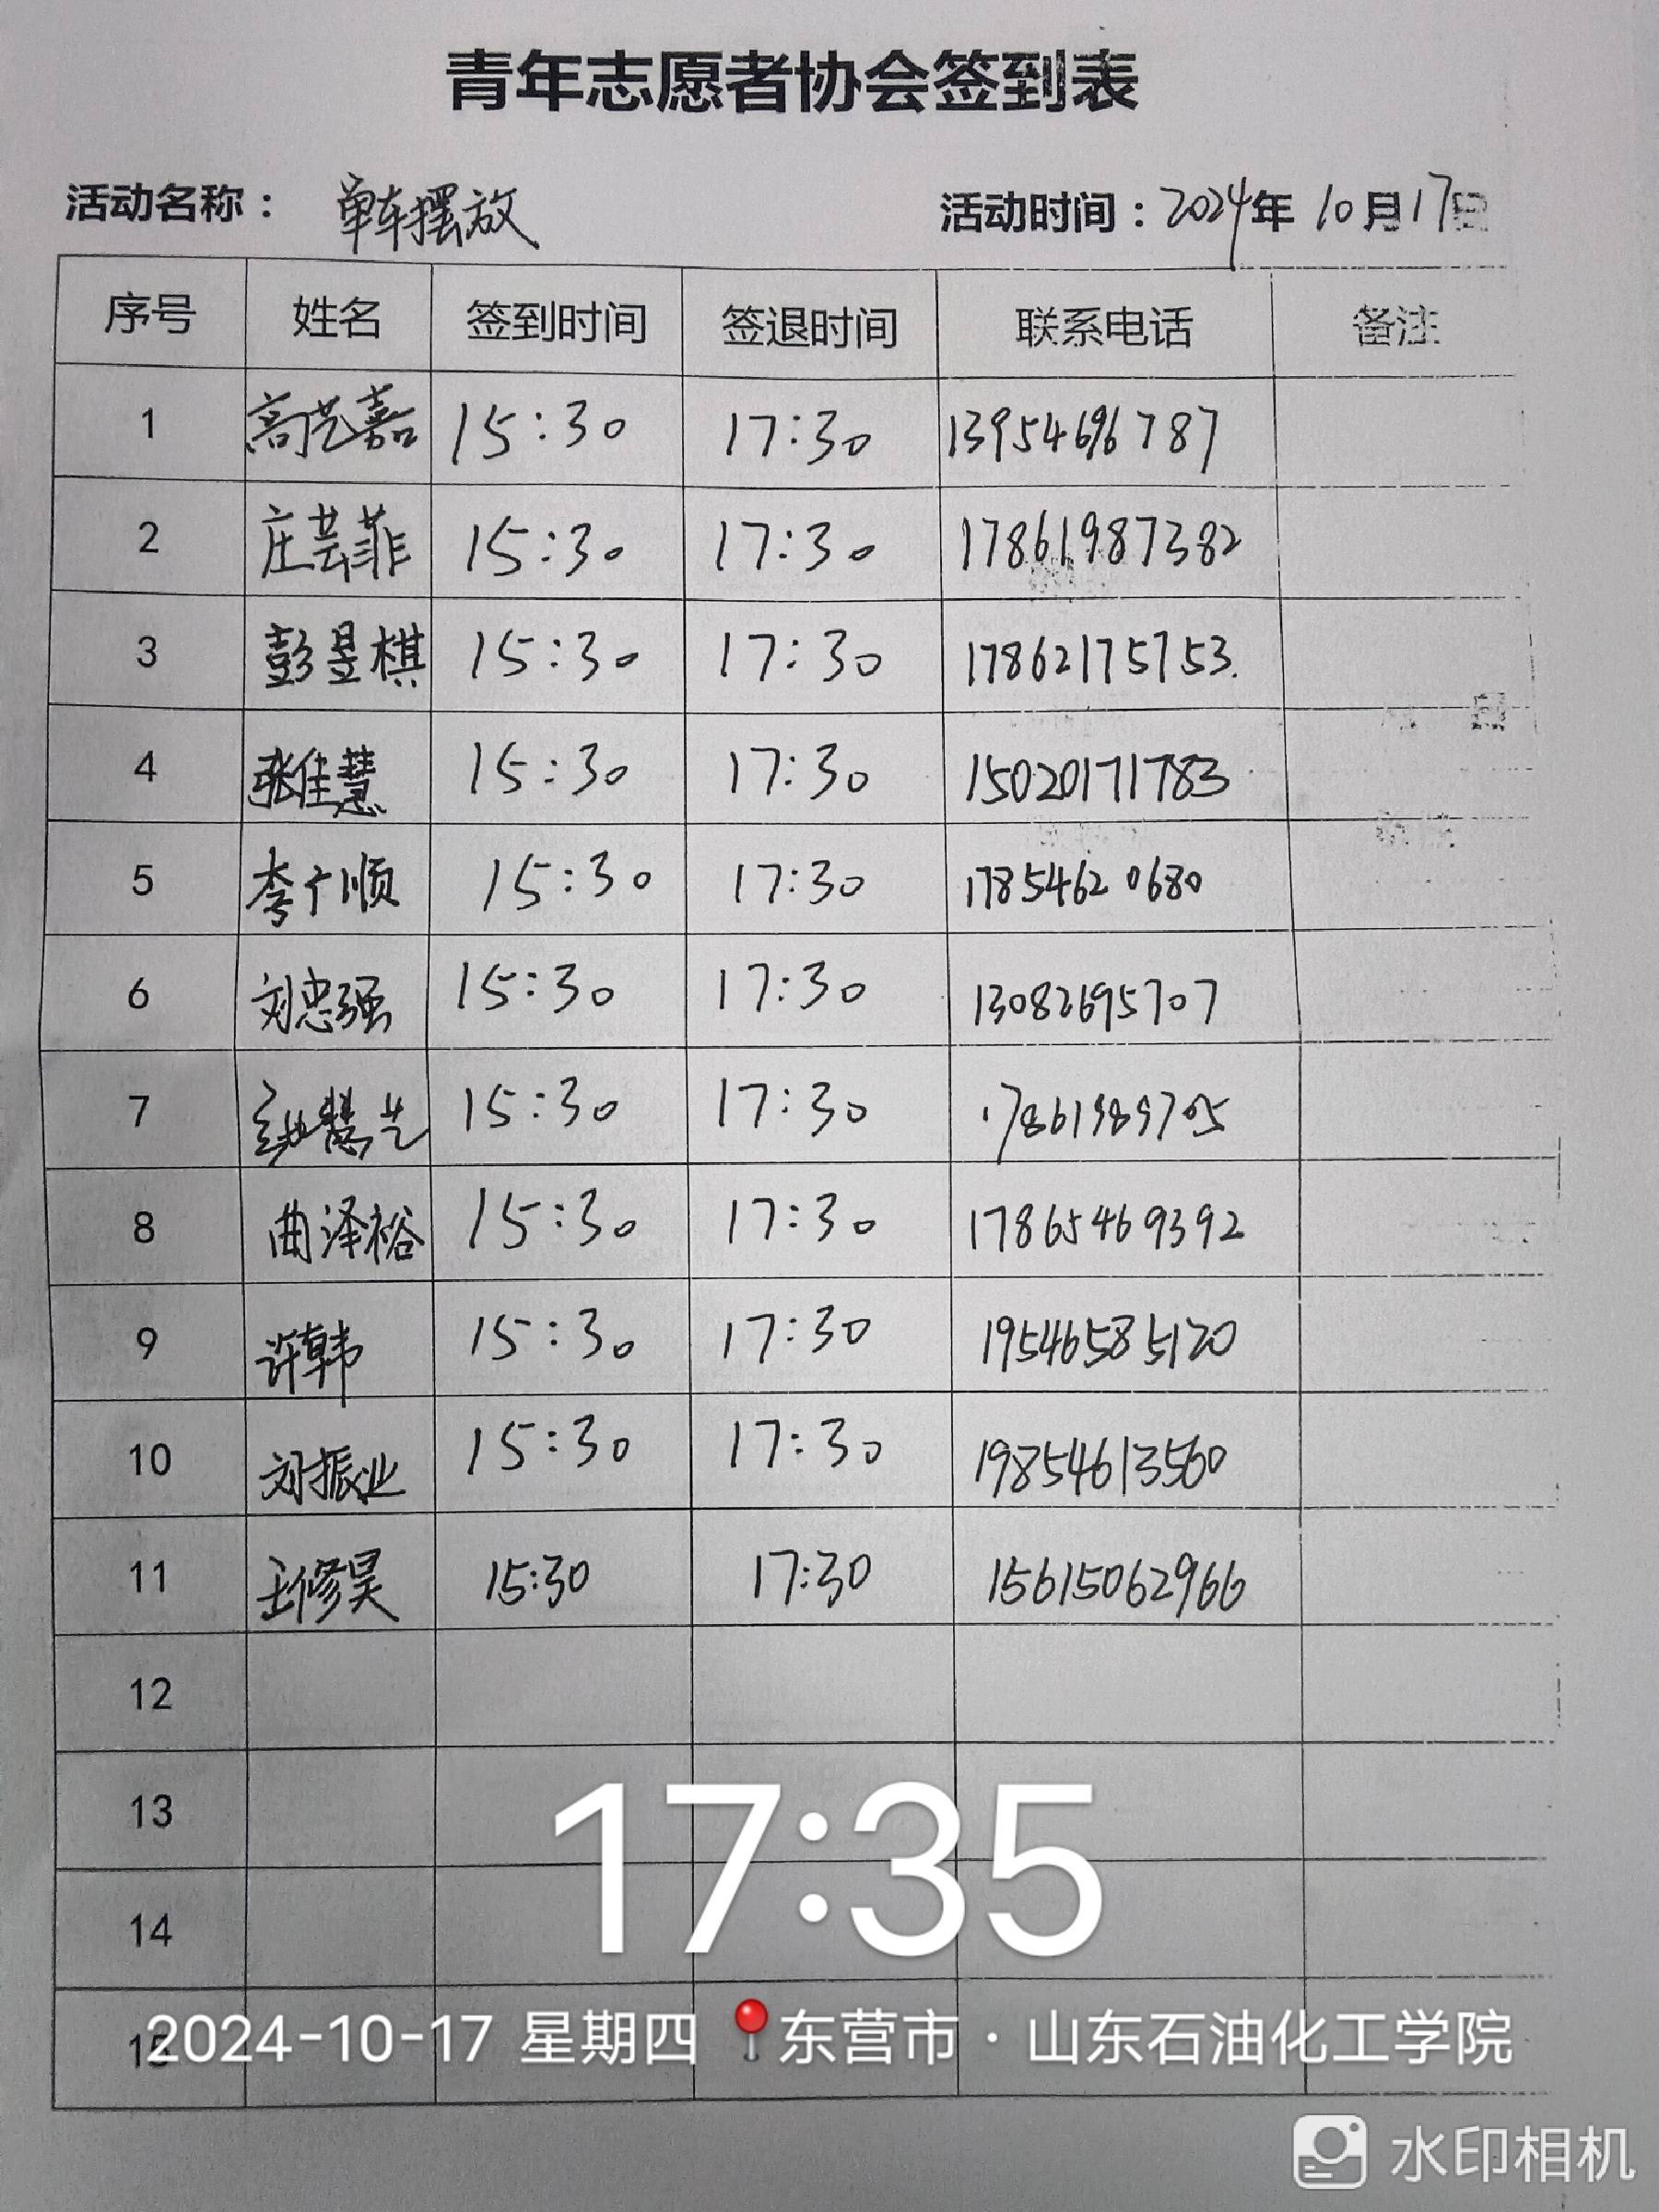 青年志愿者协会签到表
活动名称： 单车摆放 活动时间：2024年 10月17日
序号 姓名 签到时间 签退时间 联系电话 备注
1 高艺嘉 15:30 17:30 13954696787
2 庄芸菲 15:30 17:30 17861987382
3 彭昱棋 15:30 17:30 17862175753
4 张佳慧 15:30 17:30 15020171783
5 李广顺 15:30 17:30 17854620680
6 刘忠强 15:30 17:30 13082695707
7 15:30 17:30
8 曲泽裕 15:30 17:30 17865469392
9 许韩 15:30 17:30 19546585120
10 刘振业 15:30 17:30 19854613560
11 王修昊 15:30 17:30 15615062966
12
13
14
15
17:35
2024-10-17 星期四 东营市·山东石油化工学院
水印相机